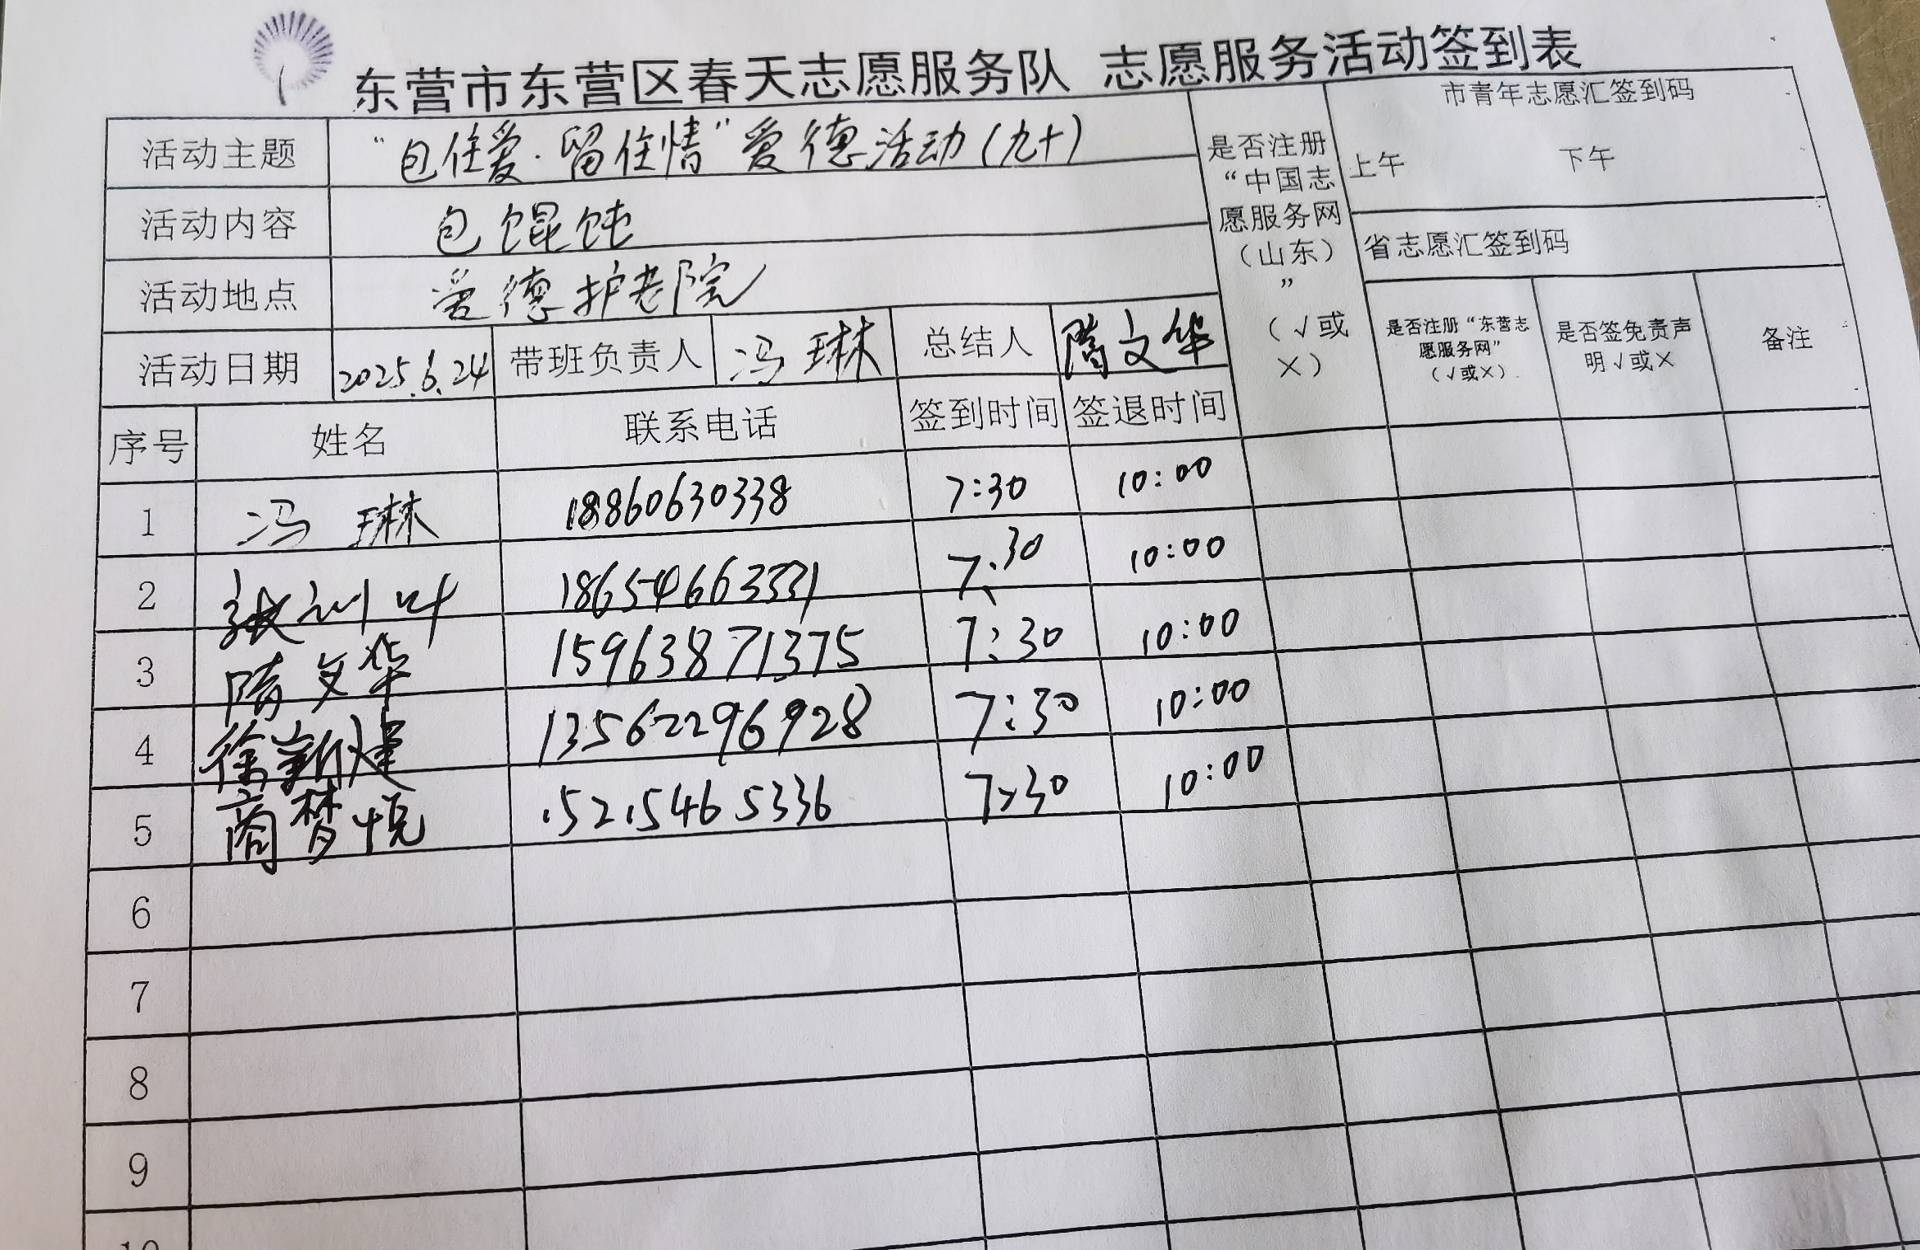 东营市东营区春天志愿服务队 志愿服务活动签到表
活动主题 “包住爱·留住情”爱德活动(九十)
活动内容 包馄饨
活动地点 爱德护老院
活动日期 2025.6.24 带班负责人 冯琳 总结人 隋文华
是否注册“中国志愿服务网（山东）”（√或×）
市青年志愿汇签到码
上午 下午
省志愿汇签到码
是否注册“东营志愿服务网”（√或×）
是否签免责声明√或×
备注
序号 姓名 联系电话 签到时间 签退时间
1 冯琳 18860630338 7:30 10:00
2 张训叶 18654663331 7:30 10:00
3 隋文华 15963871375 7:30 10:00
4 徐新建 13562296928 7:30 10:00
5 商梦悦 15215465336 7:30 10:00
6
7
8
9
10